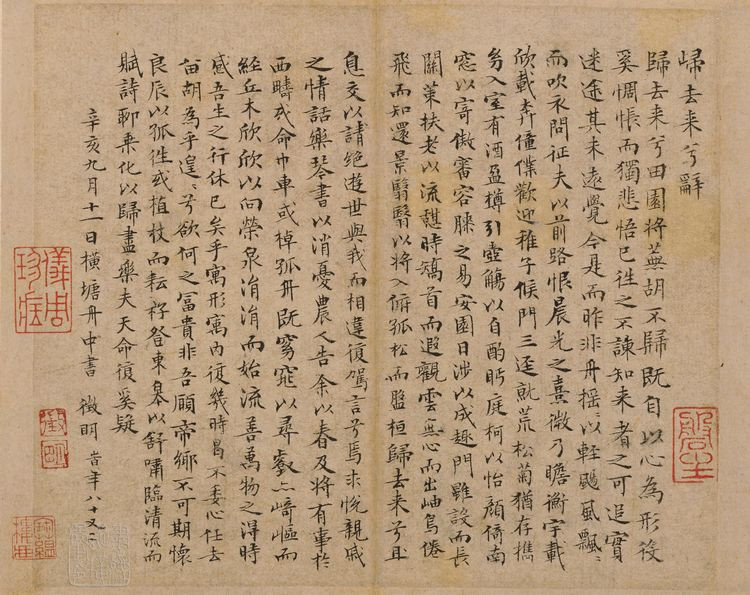 歸去来兮辭
歸去来兮田園將蕪胡不歸既自以心為形役
奚惆悵而獨悲悟已往之不諫知来者之可追實
迷途其未遠覺今是而昨非舟摇〻以輕颺風飄〻
而吹衣問征夫以前路恨晨光之熹微乃瞻衡宇載
欣載奔僮僕歡迎稚子候門三逕就荒松菊猶存携
幼入室有酒盈樽引壺觴以自酌眄庭柯以怡顏倚南
窓以寄傲審容膝之易安園日涉以成趣門雖設而長
關策扶老以流憩時矯首而遐觀雲無心而出岫鳥倦
飛而知還景翳翳以將入孤松而盤桓歸去来兮且
息交以請絕遊世與我而相違復駕言兮焉求悅親戚
之情話樂琴書以消憂農人告余以春及將有事於
西疇或命巾車或棹孤舟既窈窕以尋壑亦崎嶇而
經丘木欣欣以向榮泉涓涓而始流善萬物之得時
感吾生之行休已矣乎寓形寓內復幾時曷不委心任去
留胡為乎遑〻兮欲何之富貴非吾願帝鄉不可期懷
良辰以孤往或植杖而耘耔登東皋以舒嘯臨清流而
賦詩聊乘化以歸盡樂夫天命復奚疑
辛亥九月十一日橫塘舟中書 徵明 昔年八十又二
儀周珍藏
徵明